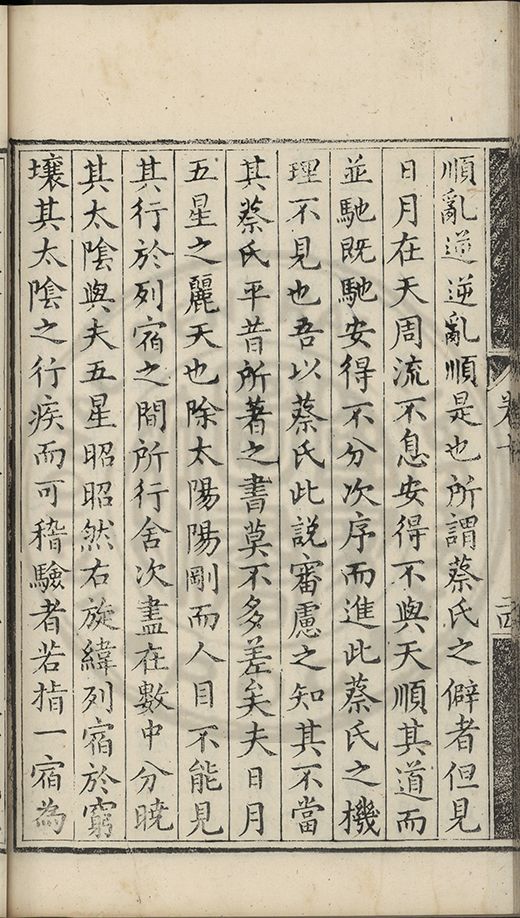 順亂逆逆亂順是也所謂蔡氏之僻者但見
日月在天周流不息安得不與天順其道而
並馳既馳安得不分次序而進此蔡氏之機
理不見也吾以蔡氏此說審慮之知其不當
其蔡氏平昔所著之書莫不多差矣夫日月
五星之麗天也除太陽陽剛而人目不能見
其行於列宿之間所行舍次盡在數中分曉
其太陰與夫五星昭昭然右旋緯列宿於窮
壤其太陰之行疾而可稽驗者若指一宿為
卷十